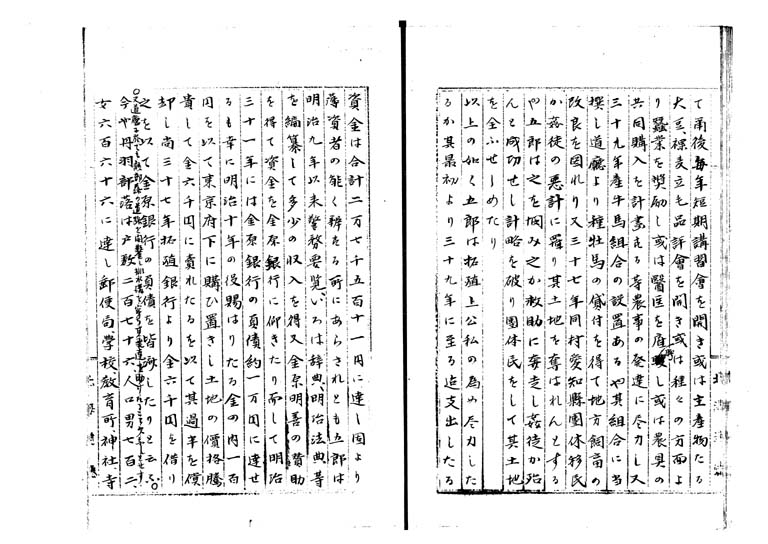 て爾後毎年短期講習會を開き或は主産物たる
大豆、裸麦立毛品評會を開き或は種々の方面よ
り蠶業を奨励し或は醫医を雇聘し或は農具の
共同購入を計畫する等農事の發達に尽力し又
三十九年産牛馬組合の設置あるや其組合に当
撰し道廳より種牡馬の貸付を得て地方飼畜の
改良を図れり又三十七年同村愛知縣團体移民
か姦徒の悪計に罹り其土地を奪はれんとする
や五郎は之を憫み之か救助に奔走し姦徒か殆
んと成功せし計略を破り團体民をして其土地
を全ふせしめたり
以上の如く五郎は拓殖上公私の為め尽力した
るか其最初より三十九年に至る迄支出したる
資金は合計二万七千五百十一円に達し固より
薄資者の能く辨する所にあらされとも五郎は
明治九年以来警務要覧、いろは辞典、明治法典等
を編纂して多少の収入を得又金原明善の賛助
を得て資金を金原銀行に仰きたり而して明治
三十一年には金原銀行の負債約一万円に達せ
るも幸に明治十年の役賜はりたる金の内一百
円を以て東京府下に購ひ置きし土地の價格騰
貴して金六千円に賣れたるを以て其過半を償
却し尚三十七年拓殖銀行より金六千円を借り
之を以て金原銀行の負債を皆済したりと云ふ。
今や丹羽部落は戸数二百七十六人口男七百二
女六百六十六に達し郵便局学校教育所、神社寺